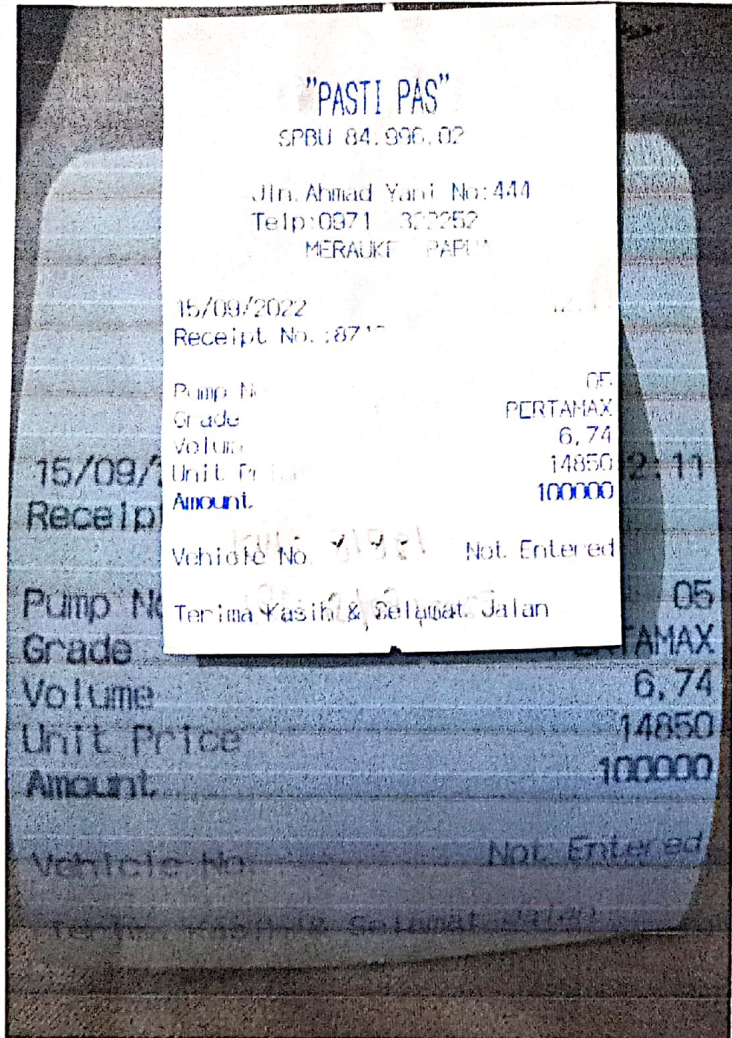 "PASTI PAS"
SPBU 84.996.02
Jln.Ahmad Yani No:444
Telp:0971 322252
MERAUKE PAPUA
15/09/2022
Receipt No.:871
Pump No
05
Grade
PERTAMAX
Volum
6,74
Unit Pri
14850
Amount
100000
Vehicle No.
Not Entered
Terima Kasih & Selamat Jalan
15/09/
2:11
Receip
Pump No
05
Grade
TAMAX
Volume
6,74
Unit Price
14850
Amount
100000
Vehicle No.
Not Entered
Kasih & Selamat Jalan